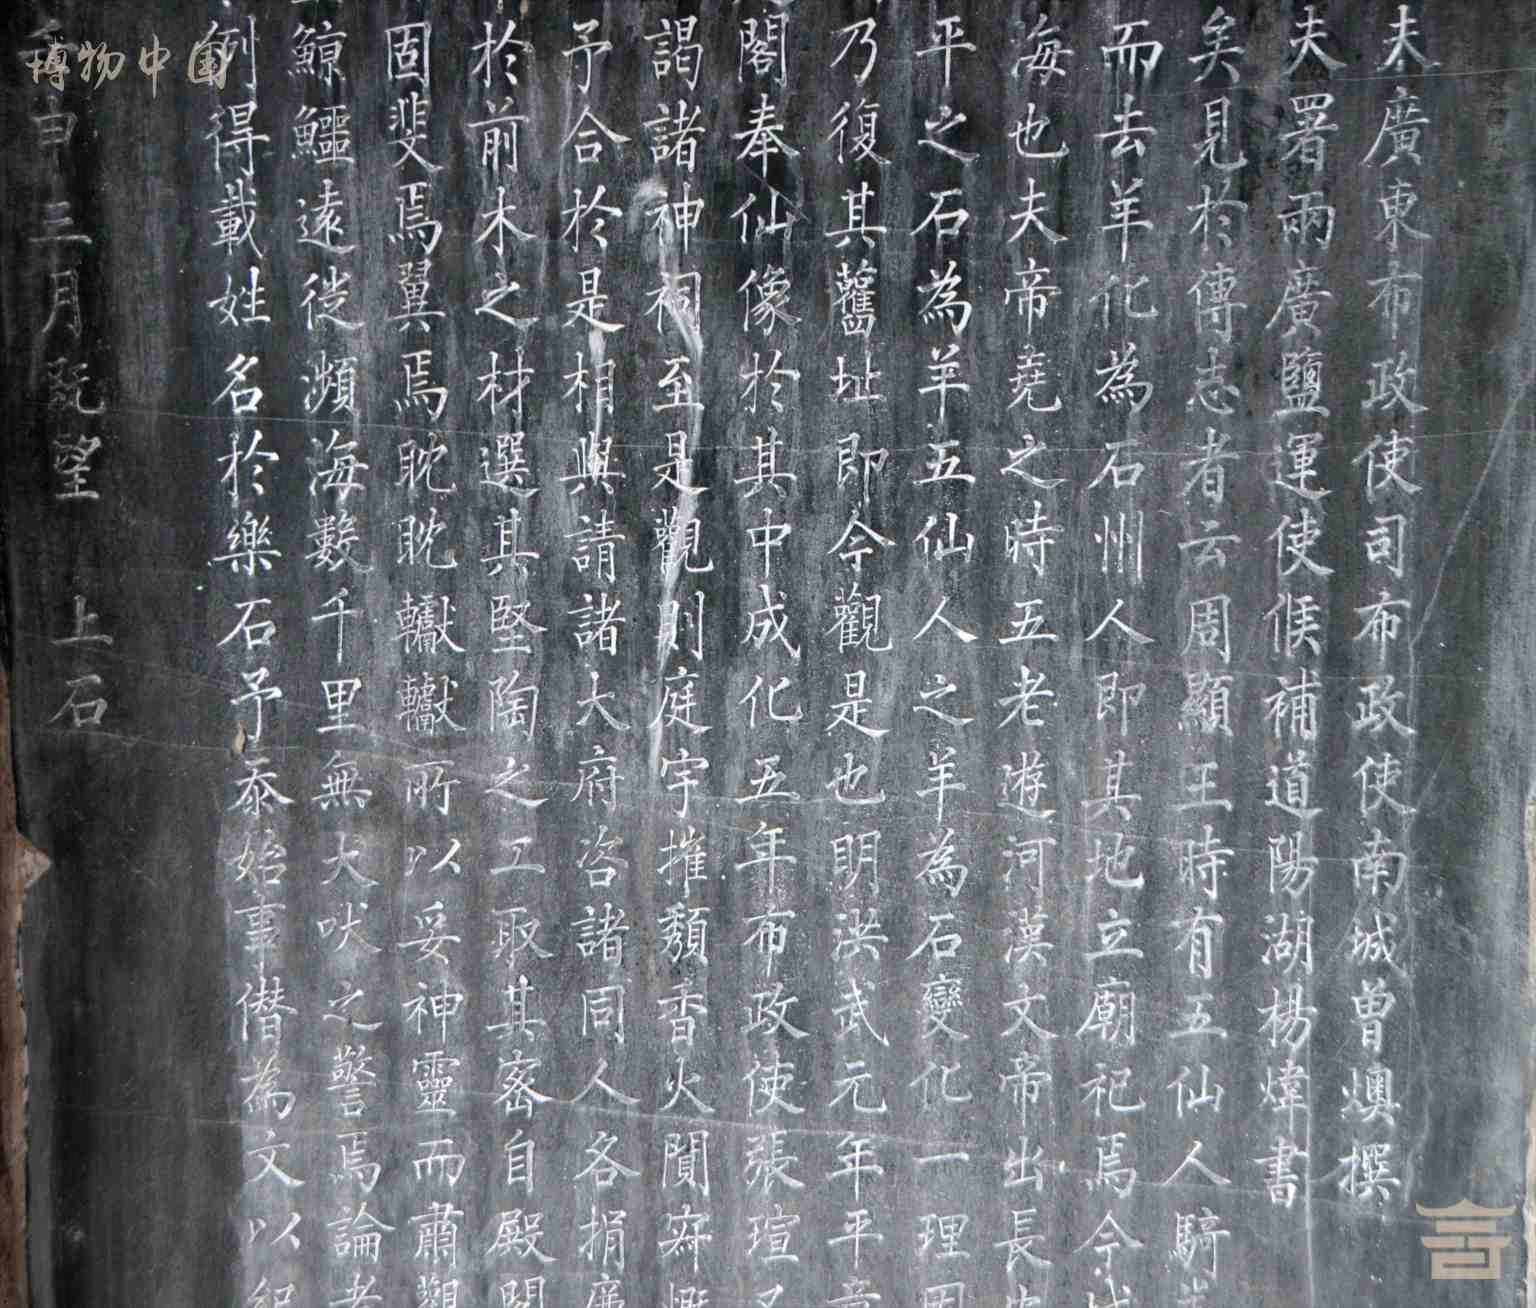 夫廣東布政使司布政使南城曾燠撰
夫署兩廣鹽運使候補道陽湖楊煒書
矣見於傳志者云周顯王時有五仙人騎
而去羊化為石州人即其地立廟祀焉今
海也夫帝堯之時五老遊河漢文帝出長
平之石為羊五仙人之羊為石變化一理
乃復其舊址即今觀是也明洪武元年平
閣奉仙像於其中成化五年布政使張瑄又
謁諸神祠至是觀則庭宇摧頹香火闃寂
予合於是相與請諸大府咨諸同人各捐廉
於前木之材選其堅陶之工取其密自殿
固斐焉翼焉眈眈轥轥所以妥神靈而肅觀
鯨鱷遠徙瀕海數千里無犬吠之警焉論者
例得載姓名於樂石予忝始事僭為文以紀
申三月既望 上石
博物中国